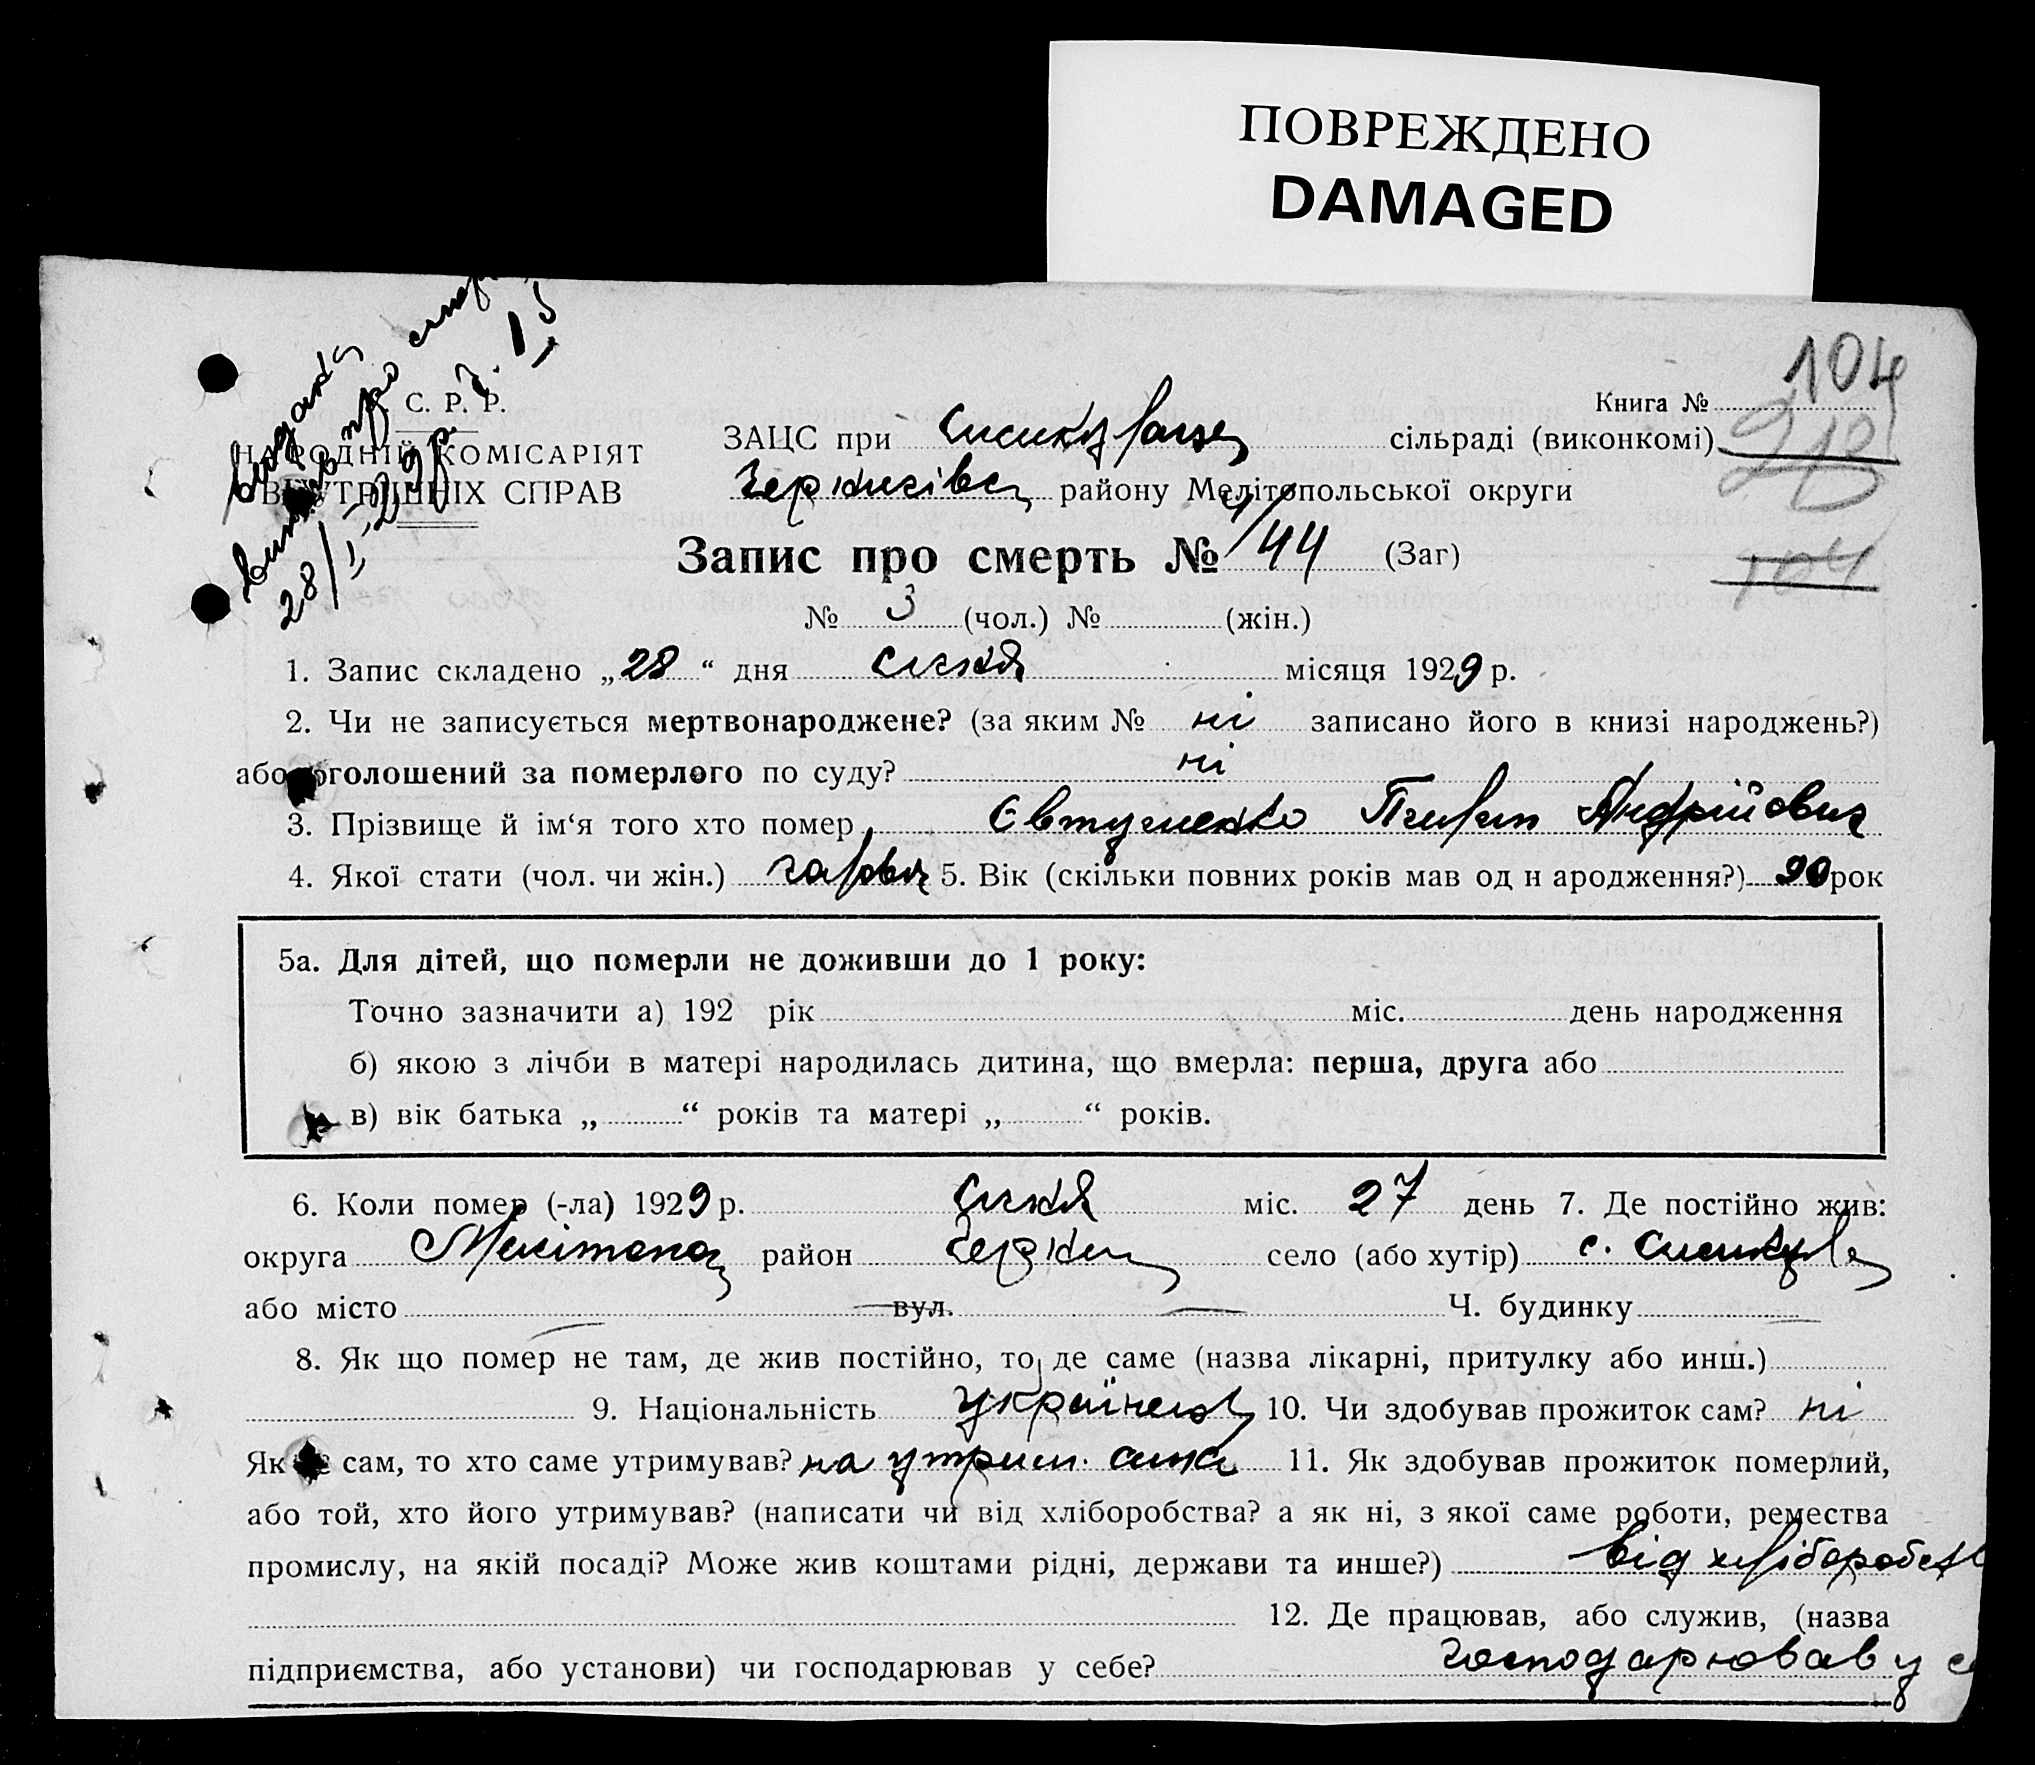 ПОВРЕЖДЕНО
DAMAGED
104
Книга №
С. Р. Р.
НАРОДНІЙ КОМІСАРІЯТ
ВНУТРІШНІХ СПРАВ
28/I-29р.
ЗАЦС при сільраді (виконкомі)
району Мелітопольської округи
Запис про смерть № 44 (Заг)
104
№ 3 (чол.) № (жін.)
1. Запис складено „28“ дня січня місяця 1929 р.
2. Чи не записується мертвонароджене? (за яким № ні записано його в книзі народжень?)
або оголошений за померлого по суду? ні
3. Прізвище й ім‘я того хто помер Євтушенко Пилип Андрійович
4. Якої стати (чол. чи жін.) чолов 5. Вік (скільки повних років мав од н ародження?) 90 рок
5а. Для дітей, що померли не доживши до 1 року:
Точно зазначити а) 192 рік міс. день народження
б) якою з лічби в матері народилась дитина, що вмерла: перша, друга або
в) вік батька „ “ років та матері „ “ років.
6. Коли помер (-ла) 1929 р. січня міс. 27 день 7. Де постійно жив:
округа Мелітопол район село (або хутір) с.
або місто вул. Ч. будинку
8. Як що помер не там, де жив постійно, то де саме (назва лікарні, притулку або инш.)
9. Національність українец 10. Чи здобував прожиток сам? ні
Як не сам, то хто саме утримував? на утрим. сина 11. Як здобував прожиток померлий,
або той, хто його утримував? (написати чи від хліборобства? а як ні, з якої саме роботи, ремества
промислу, на якій посаді? Може жив коштами рідні, держави та инше?) від хліборобст
12. Де працював, або служив, (назва
підприємства, або установи) чи господарював у себе? господарював у се